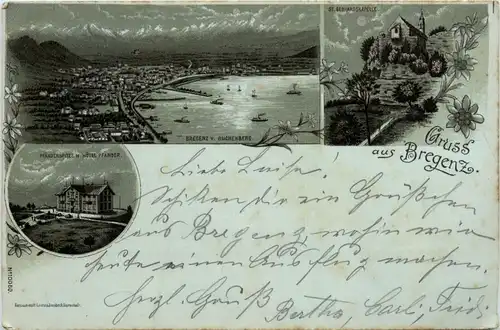 ST. GEBHARDSKAPELLE
BREGENZ V.
Gruss
aus Bregenz.
PFÄNDERSPITZE U. HOTEL PFÄNDER
Liebe Luise!
Schicken dir ein Grüßchen
aus Bregenz, wohin wir
heute einen Ausflug machten.
Herzl. Gruß
Bertha, Carl,
N°10002.